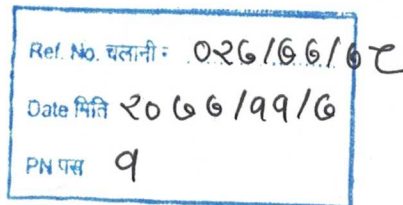 Ref. No. चलानी : ०२७/७७/७८
Date मिति २०७७/११/७
PN पस १